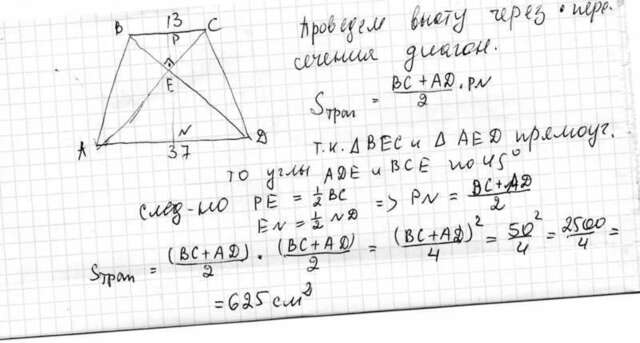 B 13 C
P
E
N
A 37 D
Проведем высоту через • пере-
сечения диагон.
Sтрап = (BC + AD)/2 · PN
т.к. △BEC и △AED прямоуг.
то углы ADE и BCE по 45°
след-но PE = 1/2 BC
EN = 1/2 ND => PN = (BC + AD)/2
Sтрап = (BC + AD)/2 · (BC + AD)/2 = (BC + AD)²/4 = 50²/4 = 2500/4 =
= 625 см²